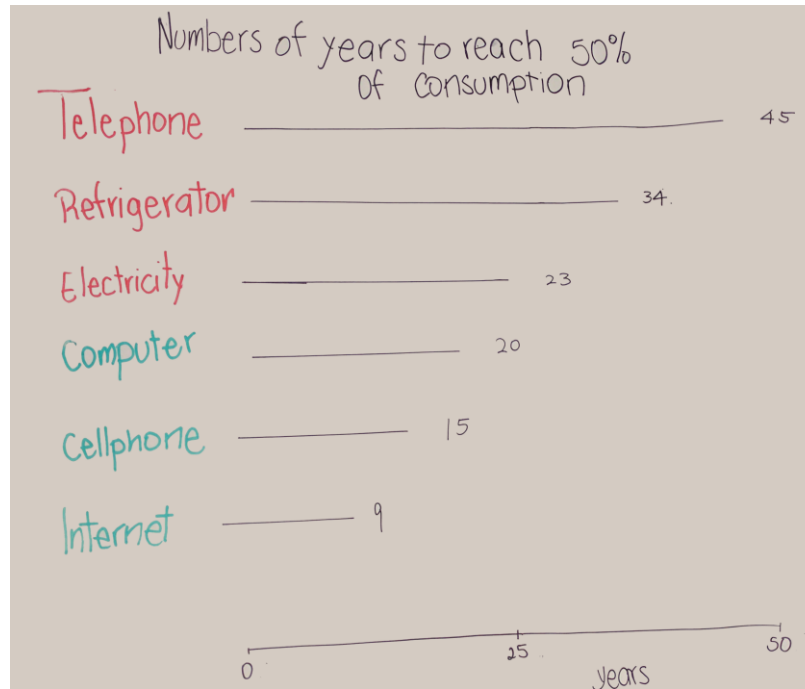 Numbers of years to reach 50%
of consumption
Telephone 45
Refrigerator 34.
Electricity 23
Computer 20
Cellphone 15
Internet 9
0 25 50
years